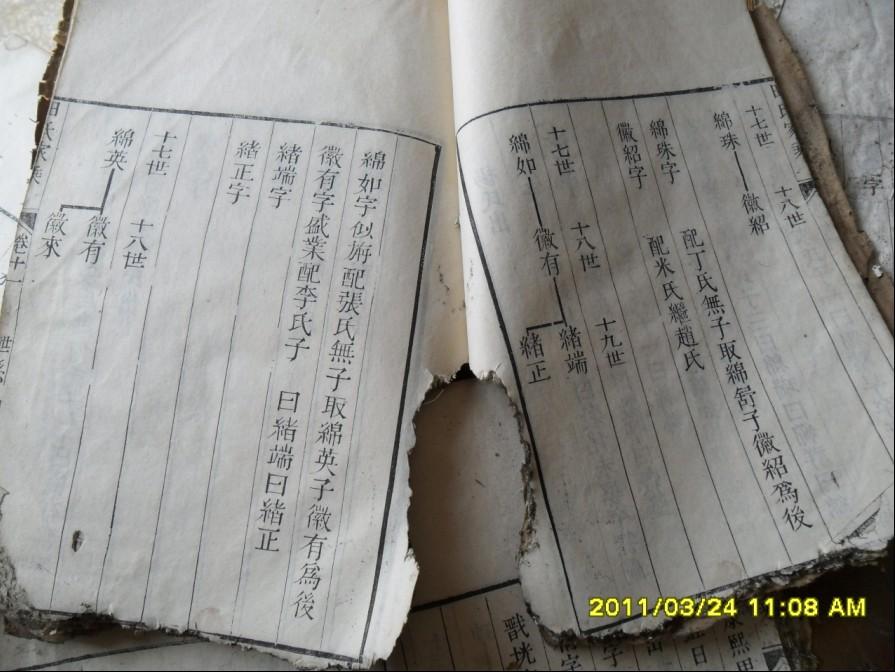 十七世 十八世
綿珠 徽紹
綿珠字 配丁氏無子取綿舒子徽紹爲後
徽紹字 配米氏繼趙氏
十七世 十八世 十九世
綿如 徽有 緒端
緒正
綿如字似旃配張氏無子取綿英子徽有爲後
徽有字盛業配李氏子 曰緒端曰緒正
緒端字
緒正字
十七世 十八世
綿英 徽有
徽來
氏家乘 卷十
2011/03/24 11:08 AM